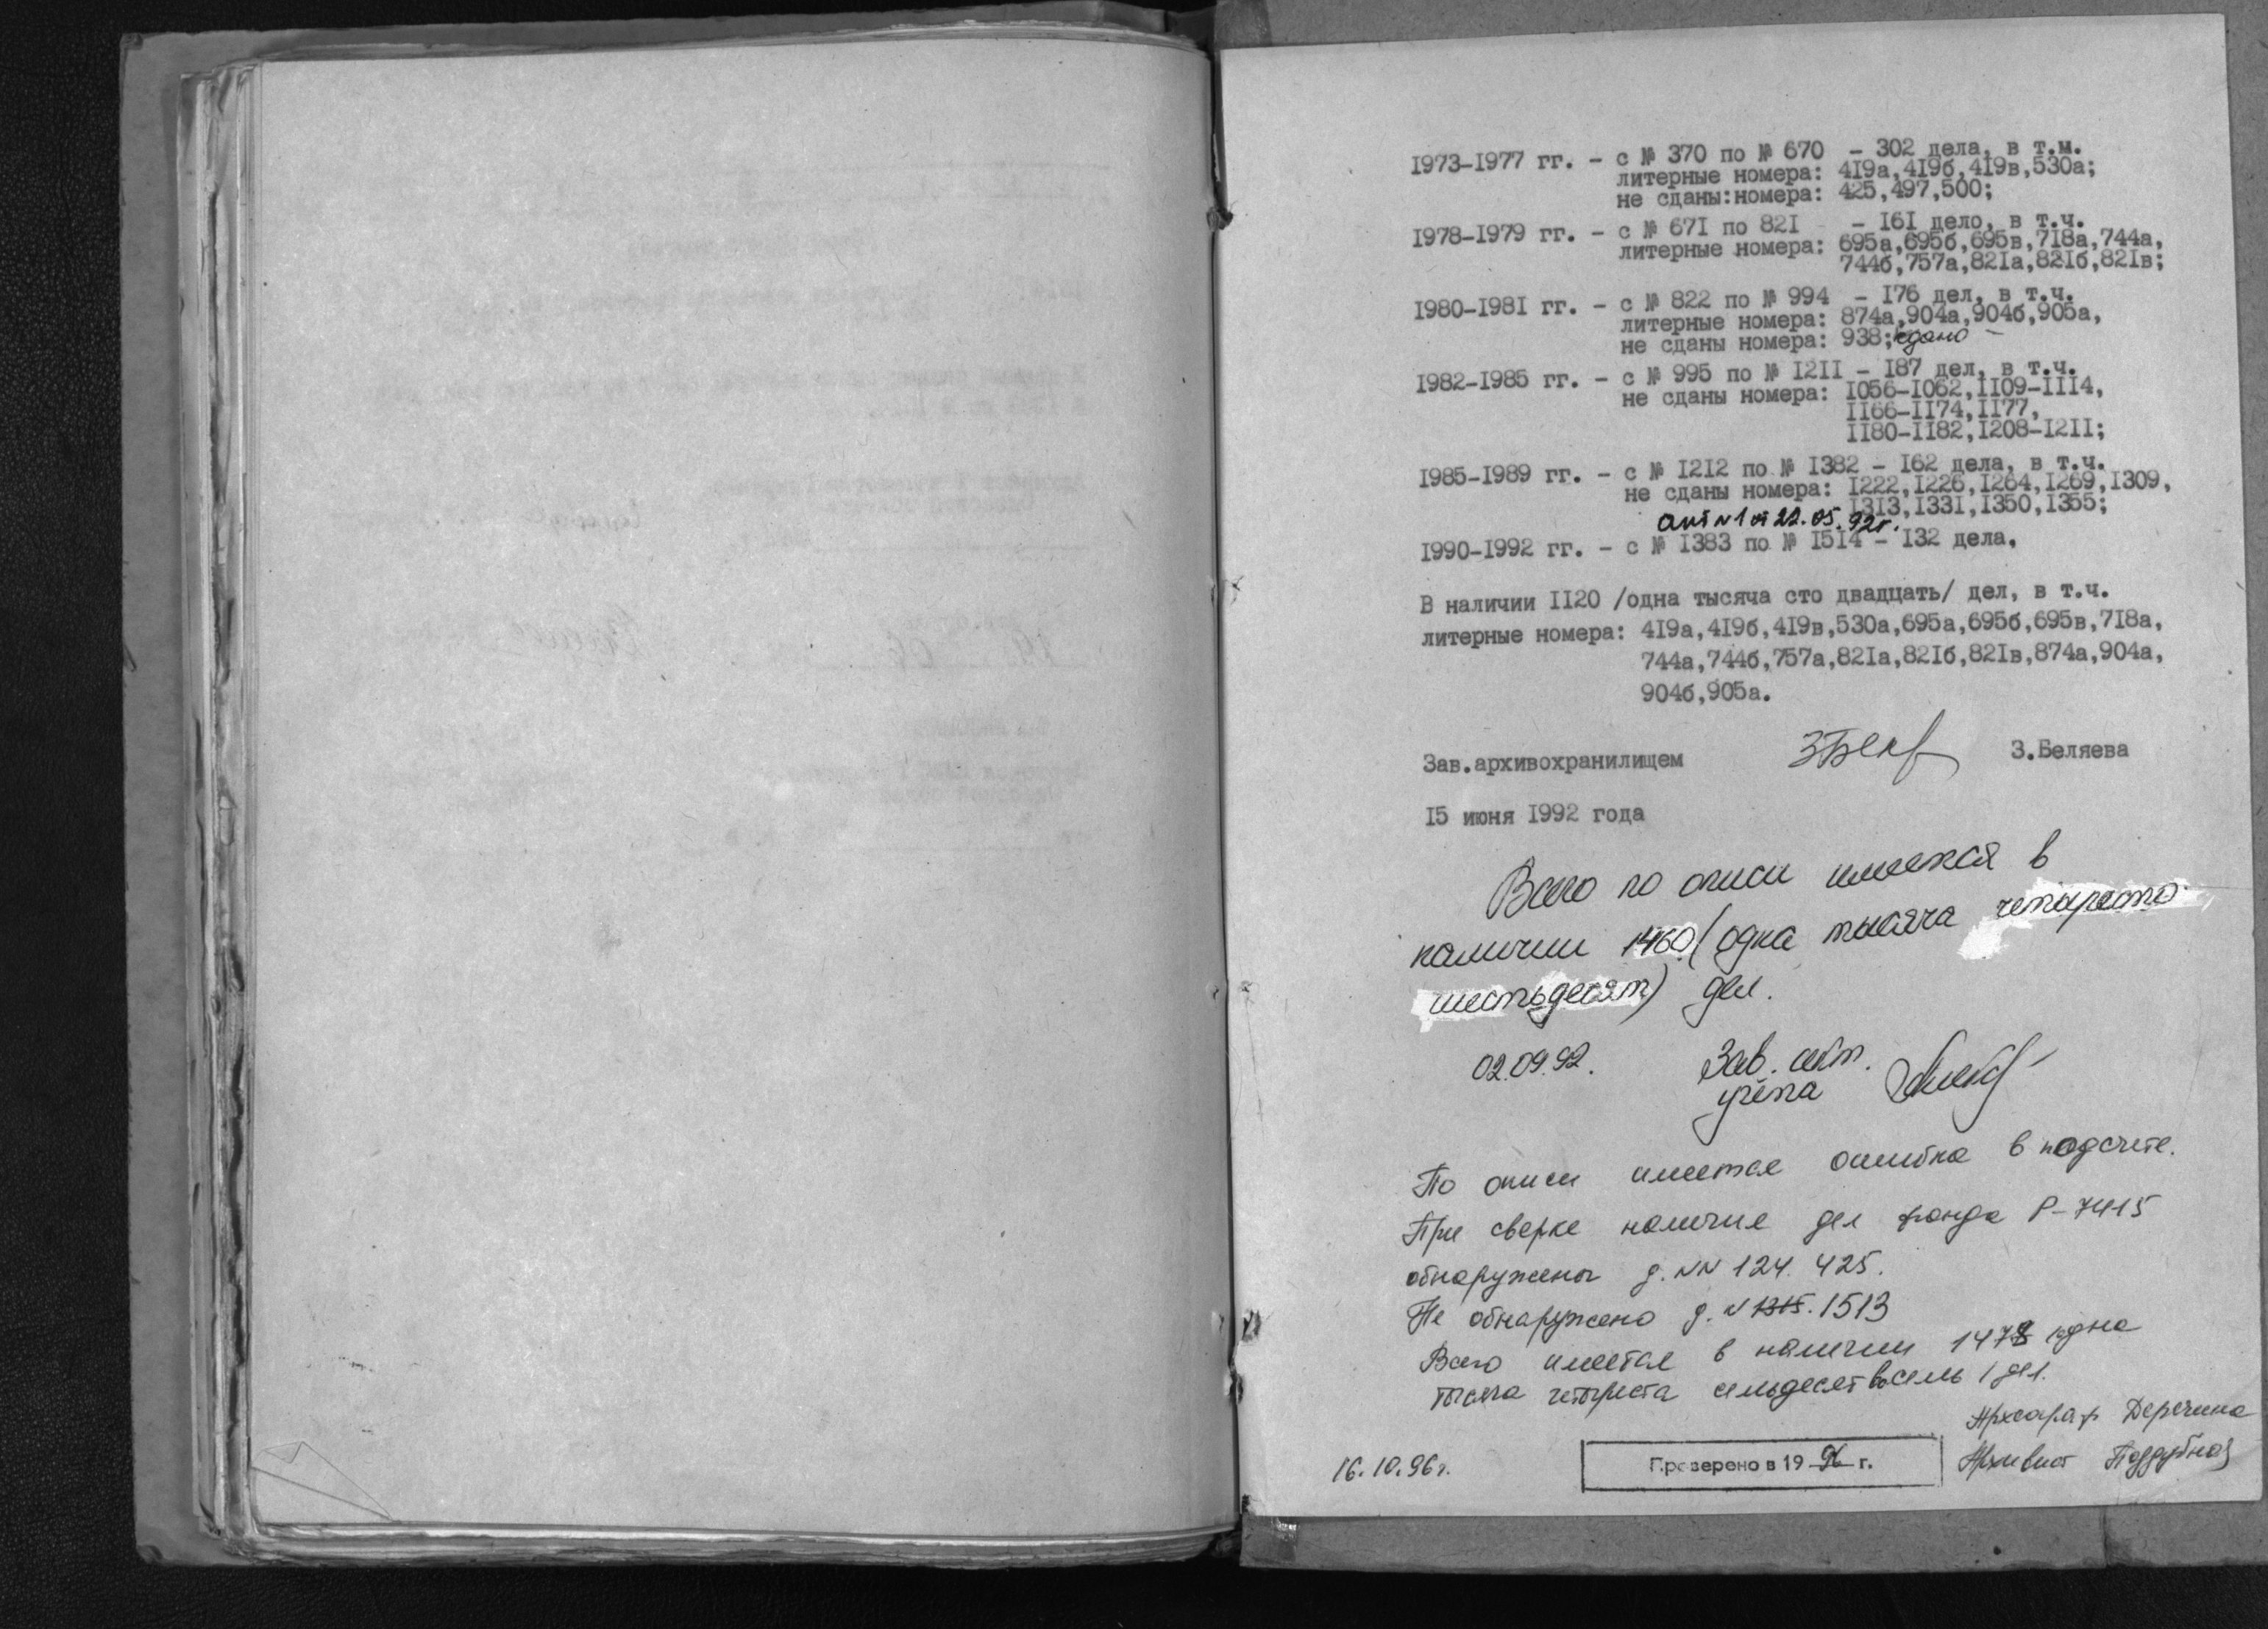 1973-1977 гг. - с № 370 по № 670 - 302 дела, в т.м.
литерные номера: 419а,419б,419в,530а;
не сданы:номера: 425,497,500;
1978-1979 гг. - с № 671 по 821 - 161 дело, в т.ч.
литерные номера: 695а,695б,695в,718а,744а,
744б,757а,821а,821б,821в;
1980-1981 гг. - с № 822 по № 994 - 176 дел, в т.ч.
литерные номера: 874а,904а,904б,905а,
не сданы номера: 938; сдано -
1982-1985 гг. - с № 995 по № 1211 - 187 дел, в т.ч.
не сданы номера: 1056-1062,1109-1114,
1166-1174,1177,
1180-1182,1208-1211;
1985-1989 гг. - с № 1212 по № 1382 - 162 дела, в т.ч.
не сданы номера: 1222,1226,1264,1269,1309,
1313,1331,1350,1355;
акт N 1 от 22.05.92г.
1990-1992 гг. - с № 1383 по № 1514 - 132 дела.
В наличии 1120 /одна тысяча сто двадцать/ дел, в т.ч.
литерные номера: 419а,419б,419в,530а,695а,695б,695в,718а,
744а,744б,757а,821а,821б,821в,874а,904а,
904б,905а.
Зав.архивохранилищем З.Беляева
15 июня 1992 года
Всего по описи имеется в
наличии 1460 (одна тысяча четыреста
шестьдесят) дел.
02.09.92. Зав. сект.
учёта
По описи имеется ошибка в подсчете.
При сверке наличия дел фонда Р-7415
обнаружены д. NN 124. 425.
Не обнаружено д. N 1315. 1513
Всего имеется в наличии 1478 /одна
тысяча четыреста семьдесят восемь/ дел.
Деречина
16.10.96г. Проверено в 1996 г. Архивист Поддубная